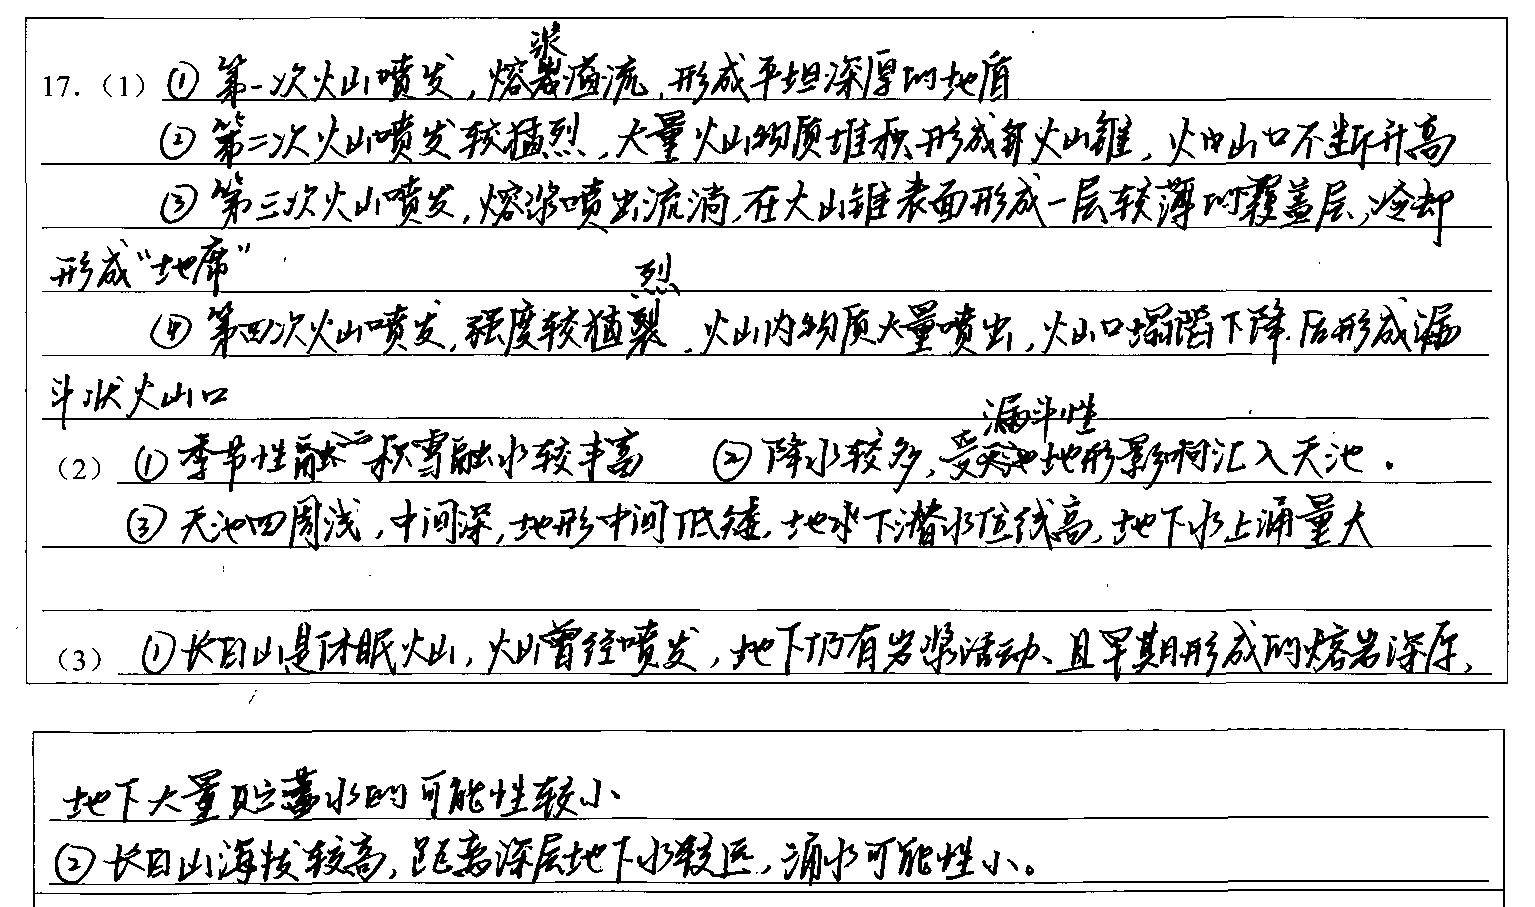 17.（1）① 第一次火山喷发，熔浆溢流，形成平坦深厚的地盾
② 第二次火山喷发较猛烈，大量火山物质堆积形成火山锥，火山口不断升高
③ 第三次火山喷发，熔浆喷出流淌，在火山锥表面形成一层较薄的覆盖层，冷却
形成“地席”
④ 第四次火山喷发，强度较猛烈，火山内物质大量喷出，火山口塌陷下降，后形成漏
斗状火山口
（2）① 季节性积雪融水较丰富 ② 降水较多，受漏斗性地形影响汇入天池。
③ 天池四周浅，中间深，地形中间低矮，地下潜水位线高，地下水上涌量大
（3）① 长白山是休眠火山，火山曾经喷发，地下仍有岩浆活动、且早期形成的熔岩深厚，
地下大量贮蓄水的可能性较小、
② 长白山海拔较高，距离深层地下水较远，涌水可能性小。